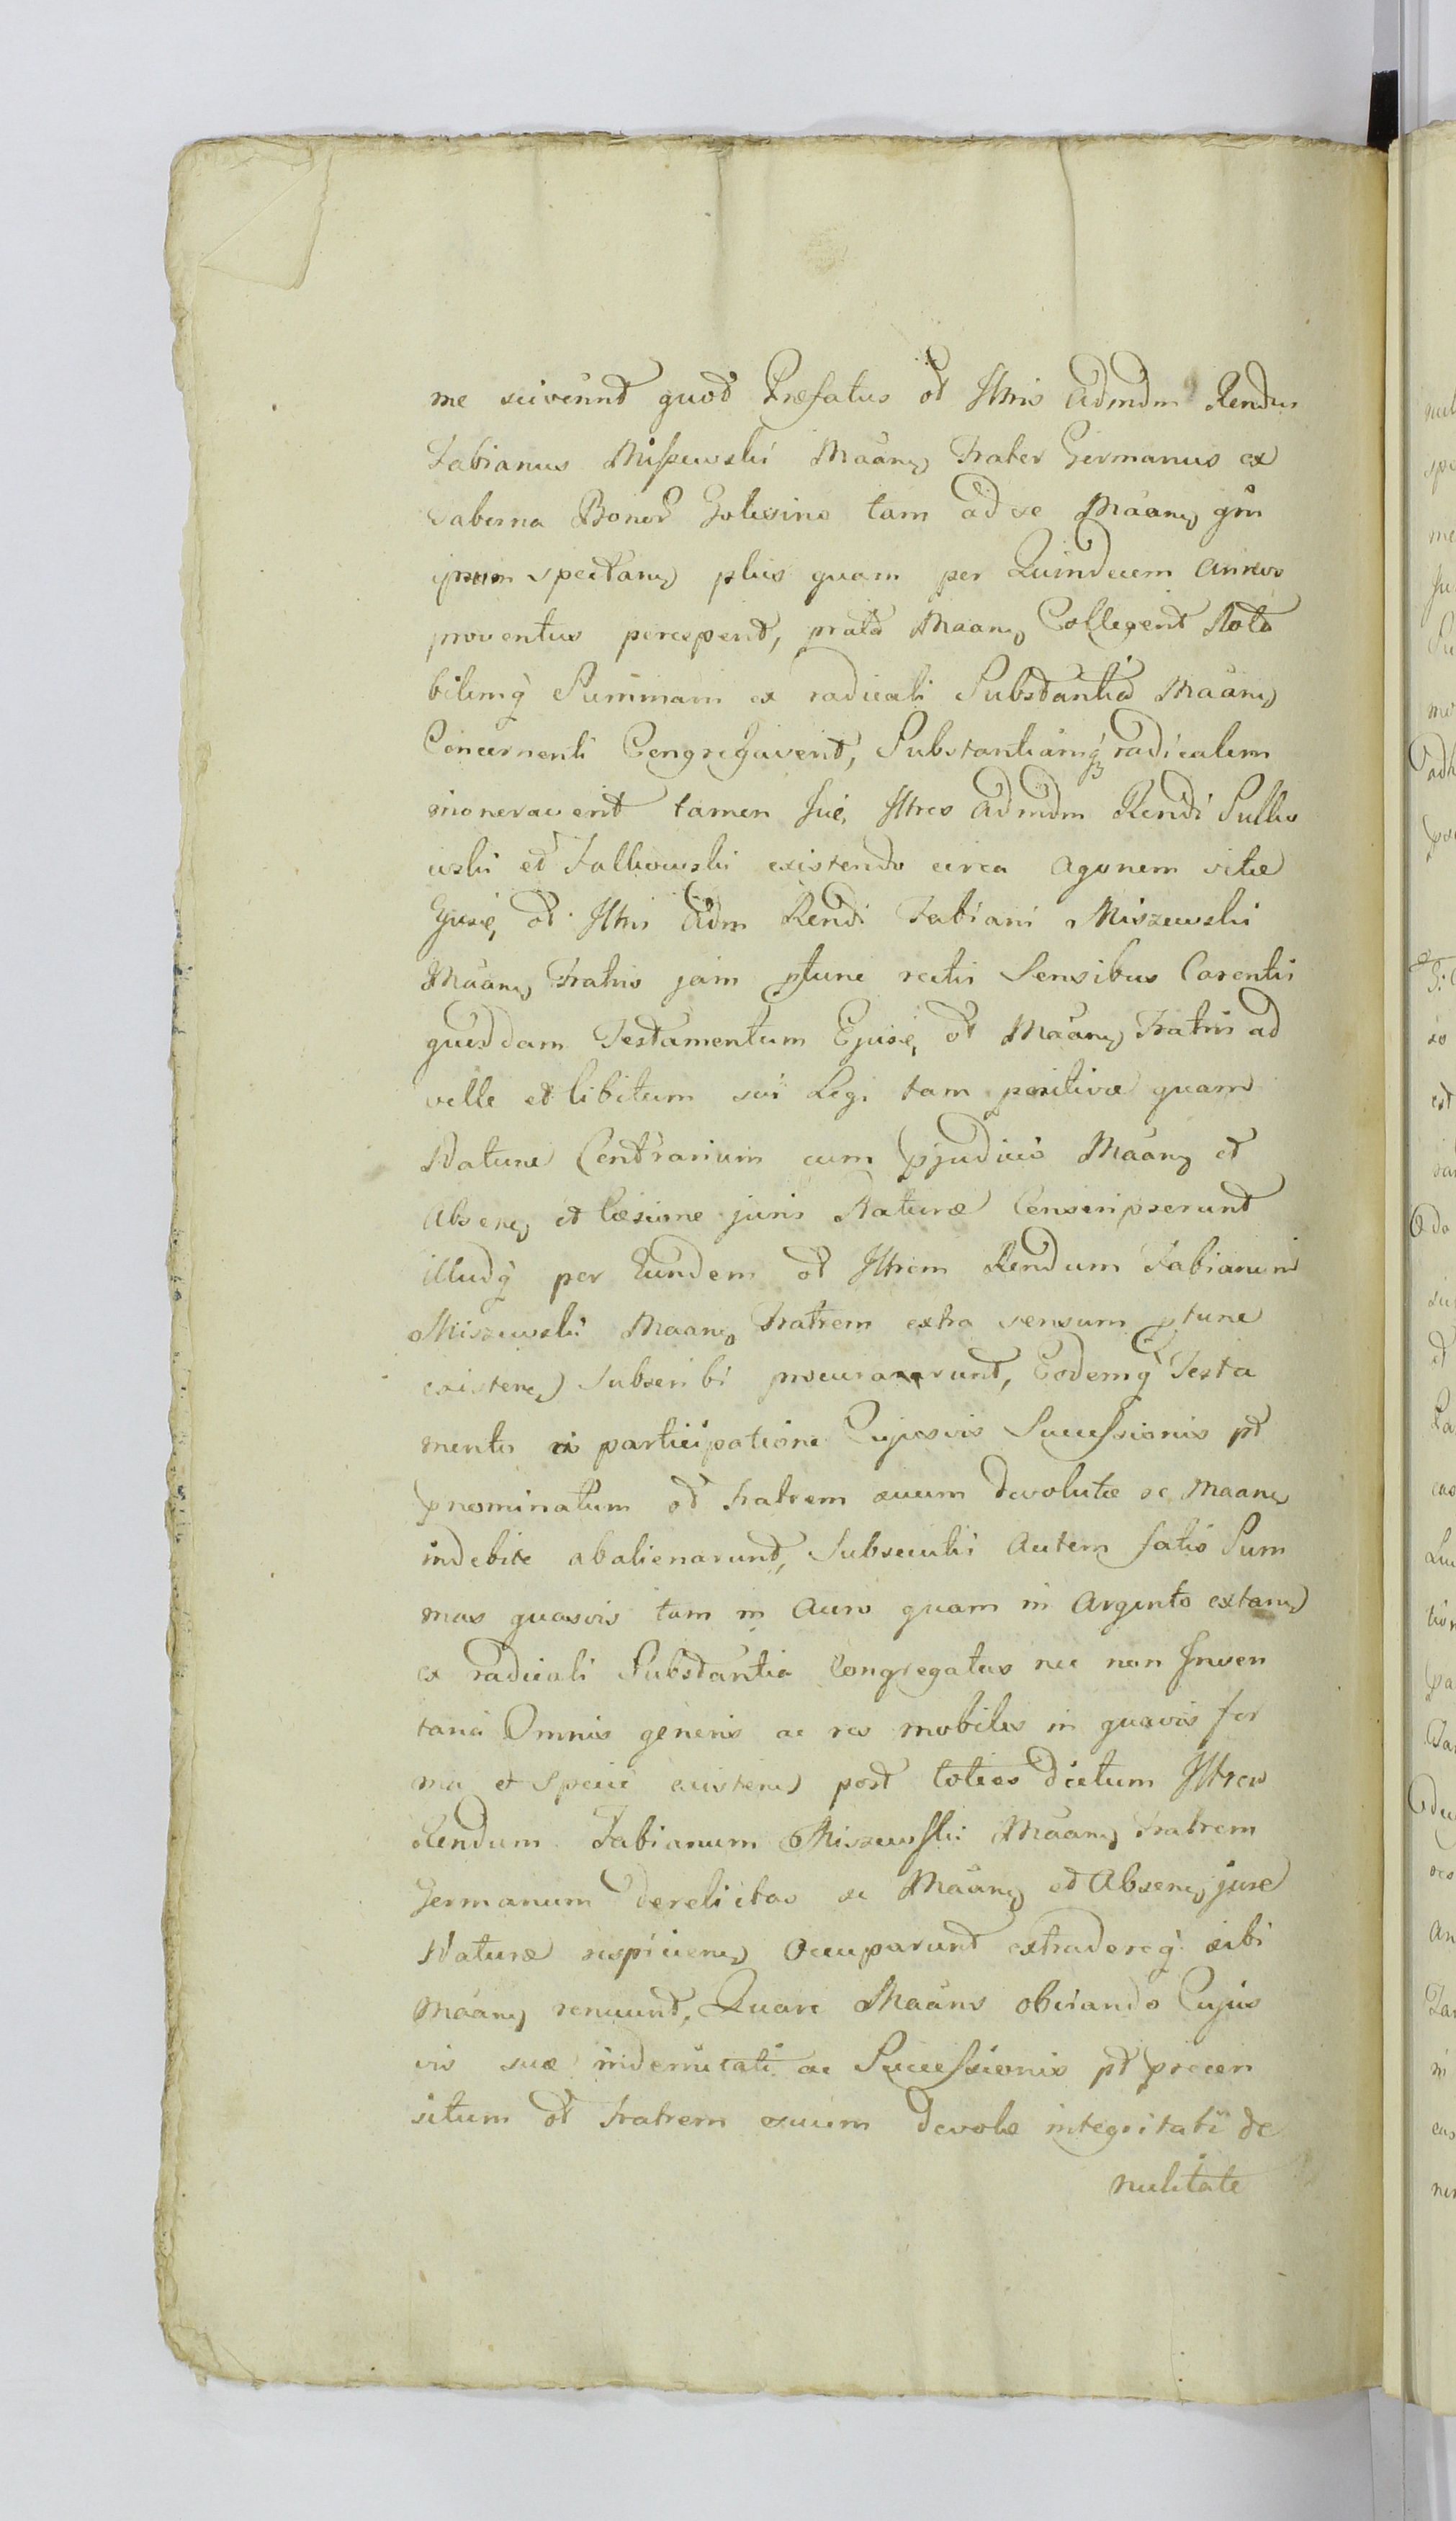 me sciverint quod Præfatus ol Illtris Admdm Rendus
Fabianus Miszewski Maãnῳ Frater Germanus ex
taberna Bonor Golesino tam ad se Maãnῳ qm
ipsum spectanῳ plus quam per Quindecem Annos
proventus perceperit, prata Maanῳ Collegerit Nota
bilemq̃ Summam ex radicali Substantia Maãnῳ
Concernenti Congregaverit, Substantiamq̃ radicalem
moneraverit tamen Iidē Illtres Admdm Rendi Sulko
wski et Falkowski existendo circa Agonem vitæ
Ejusdē ol Illtris Adm Rendi Fabiani Miszewski
Maãnῳ Fratris jam ptunc rectis Sensibus Carentis
quoddam Testamentum Ejusdē ol Maãnῳ Fratris ad
velle et libitum sui Legi tam positivæ quam
Naturæ Contrarium cum pjudicio Maãnῳ et
Absenῳ et læsione juris Naturæ Conscripserunt
illudq̃ per Eundem ol Illtrem Rendum Fabianum
Miszewski Maanῳ Fratrem extra sensum ptunc
existenῳ Subscribi procurarunt, Eodemq̃ Testa
mento a participatione Cujusvis Successionis pt
pnominatum ol Fratrem suum devolutæ se Maanῳ
indebite abalienarunt, Subsecutis Autem fatis Sum
mas quasvis tam in Auro quam in Argento extanῳ
ex radicali Substantia Congregatas nec non Inven
taria Omnis generis ac res mobiles in quavis for
ma et Specie existenῳ post toties dictum Illtrem
Rendum Fabianum Miszewski Maãnῳ Fratrem
Germanum derelictas se Maãnῳ et Absenῳ jure
Naturæ respicienῳ Occuparunt extradereq̃ sibi
Maãnῳ renuunt, Quare Maãns obviando Cujus
vis suæ indemnitati ac Successionis pt precen
situm ol Fratrem suum devolæ integritati de
nulitate